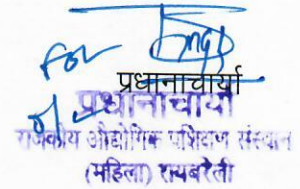 For
प्रधानाचार्या
प्रधानाचार्या
राजकीय औद्योगिक प्रशिक्षण संस्थान
(महिला) रायबरेली